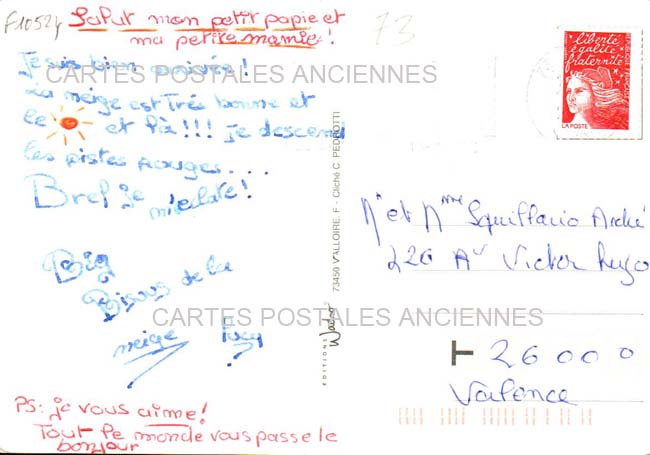 F10524
73
Salut mon petit papie et
ma petite mamie!
Je suis bien arrivée!
La neige est très bonne et
le et là!!! je descend
les pistes rouges...
Bref je m'éclate!
Big
Bisous de la
neige Lucy
PS: je vous aime!
Tout le monde vous passe le
bonjour
CARTES POSTALES ANCIENNES
CARTES POSTALES ANCIENNES
73450 VALLOIRE. F - Cliché C. PEDROTTI
EDITIONS
liberté
égalité
fraternité
RÉPUBLIQUE FRANÇAISE
LA POSTE
Mr et Mme André
220 Av Victor Hugo
26000
Valence